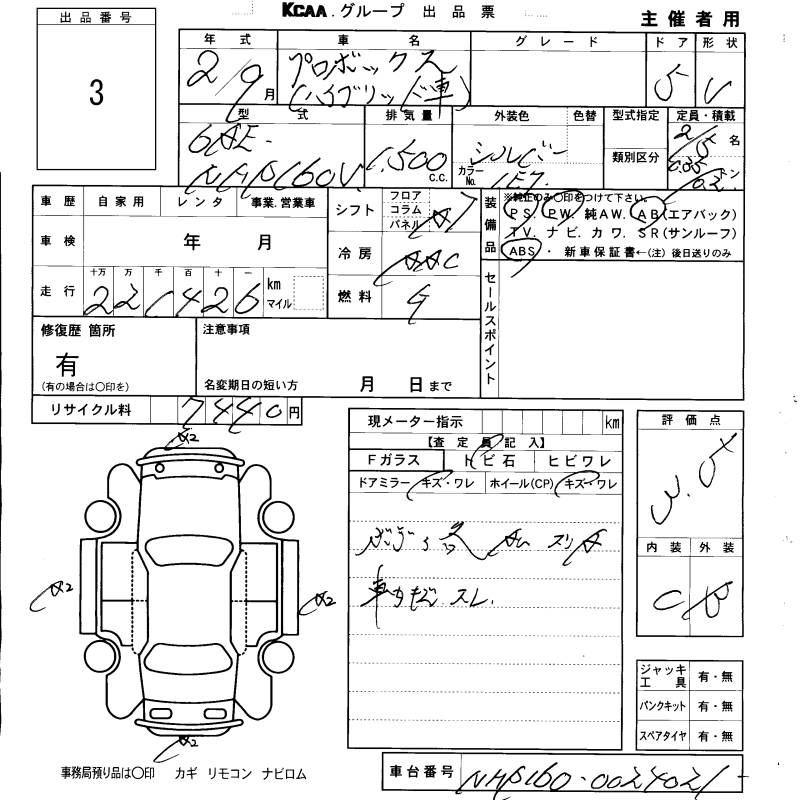 KCAA.グループ 出品票
主催者用
出品番号
3
年式 車名 グレード ドア 形状
2/9月 プロボックス 5 V
(ハイブリッド車)
型式 排気量 外装色 色替 型式指定 定員・積載
類別区分
6AE- シルバー 2/5名
NHP160V 1,500c.c. カラーNo. 1E7 トン
車歴 自家用 レンタ 事業.営業車
車検 年 月
走行 十万 万 千 百 十 一 km マイル
221426
シフト フロア コラム パネル AT
冷房 AAC
燃料 G
装備品
※純正のみ〇印をつけて下さい。
PS. PW. 純AW. AB(エアバック)
TV. ナビ. カワ. SR(サンルーフ)
ABS・ 新車保証書←(注)後日送りのみ
セールスポイント
修復歴 箇所
有
(有の場合は〇印を)
注意事項
名変期日の短い方 月 日まで
リサイクル料 7440円
現メーター指示 km
【査定員記入】
Fガラス トビ石 ヒビワレ
ドアミラー キズ・ワレ ホイール(CP) キズ・ワレ
スリA
スレ.
評価点
3.5
内装 外装
C B
A2
A2
A2
A2
ジャッキ工具 有・無
パンクキット 有・無
スペアタイヤ 有・無
事務局預り品は〇印 カギ リモコン ナビロム
車台番号 NHP160-0024021